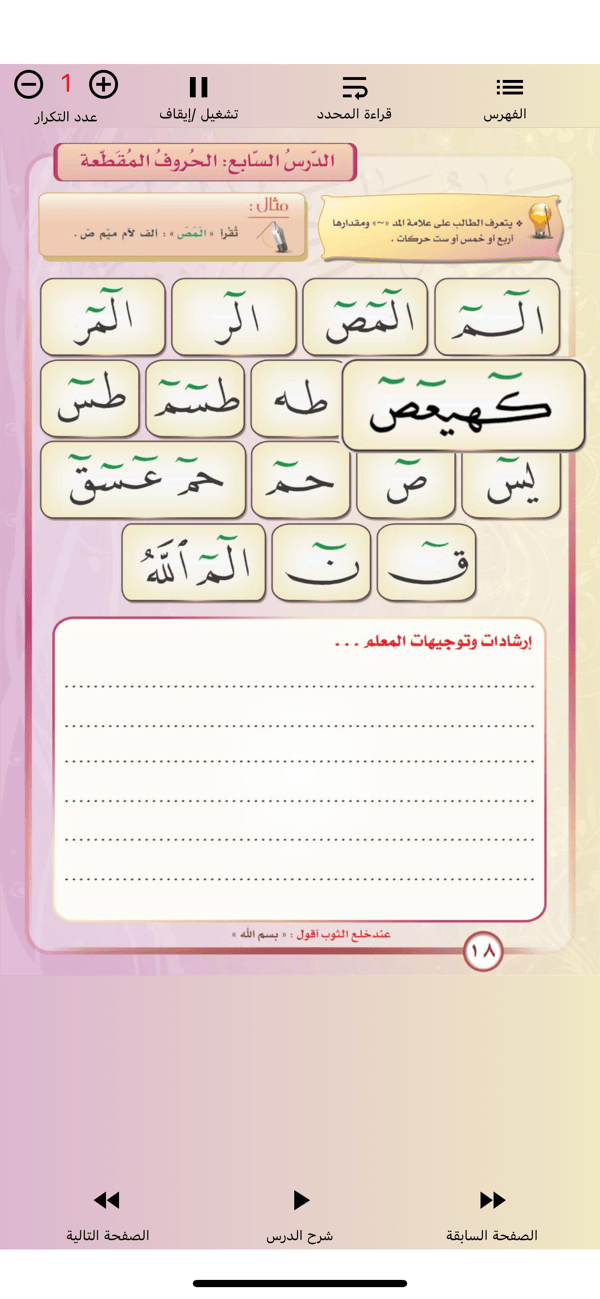 1
عدد التكرار
تشغيل /إيقاف
قراءة المحدد
الفهرس
الدّرسُ السّابع: الحُروفُ المُقَطّعة
❖ يتعرف الطالب على علامة المد «~» ومقدارها
أربع أو خمس أو ست حركات .
مثال :
تُقْرأ « الٓمٓصٓ » : ألف لآم ميٓم صٓ .
الٓـمٓ
الٓمٓصٓ
الٓر
الٓمٓر
كٓهيعٓصٓ
طه
طسٓمٓ
طسٓ
يسٓ
صٓ
حمٓ
حمٓ عٓسٓقٓ
قٓ
نٓ
الٓمٓ ٱللَّهُ
إرشادات وتوجيهات المعلم . . .
عند خلع الثوب أقول : « بسم الله »
١٨
الصفحة السابقة
شرح الدرس
الصفحة التالية